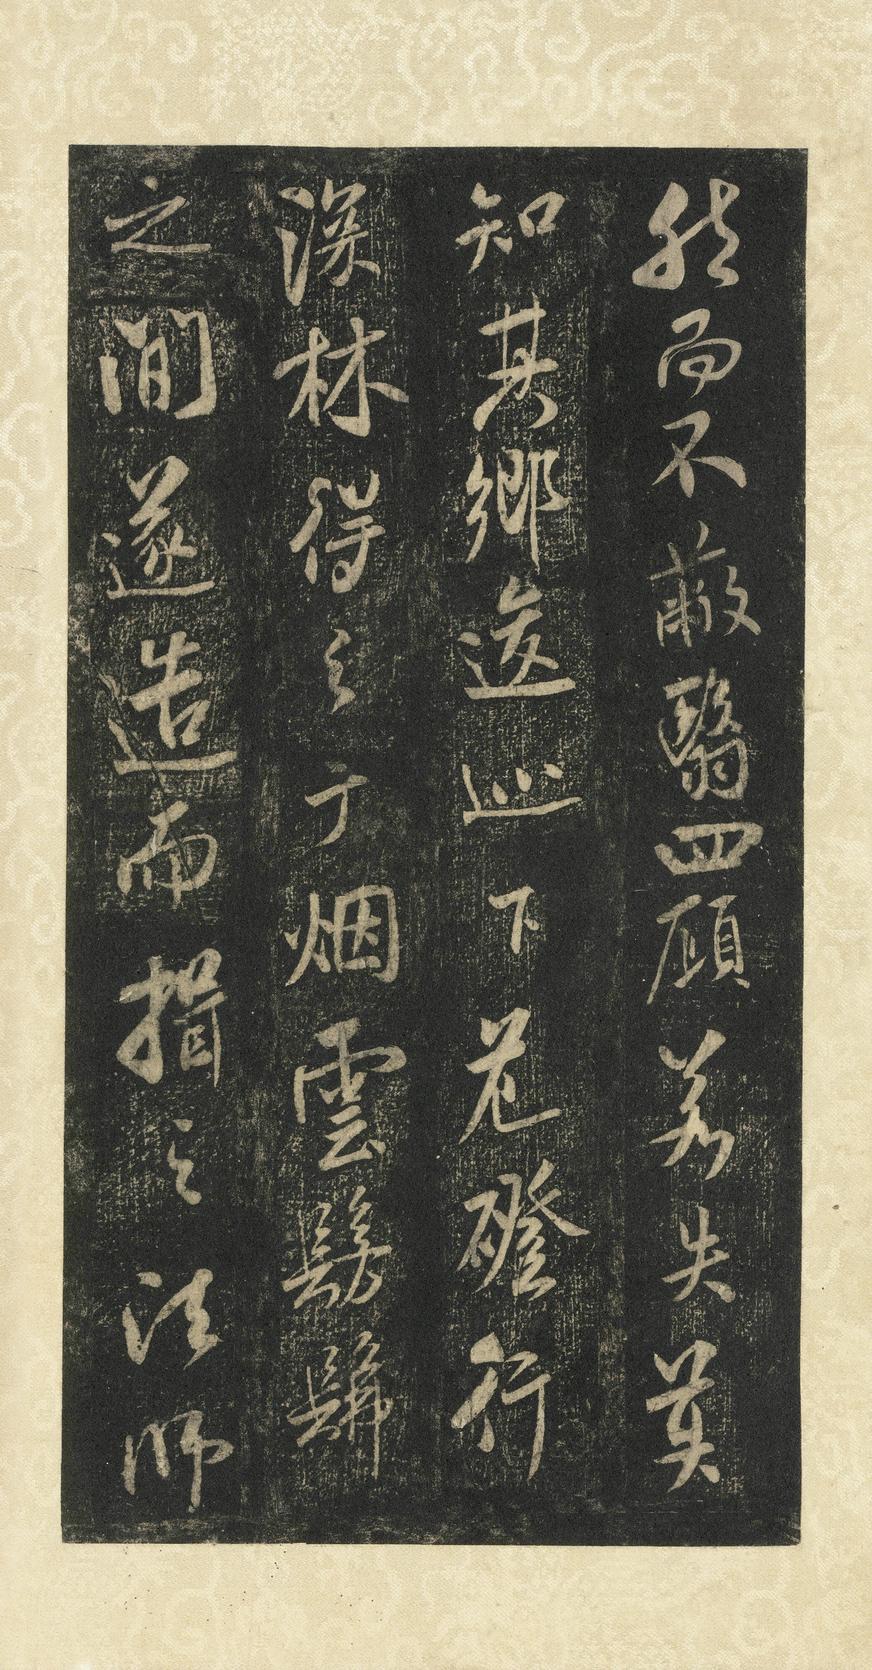 然而不蔽翳四顾若失莫
知其鄉逡巡下危磴行
深林得之于烟雲髣髴
之間遂造而揖之法師